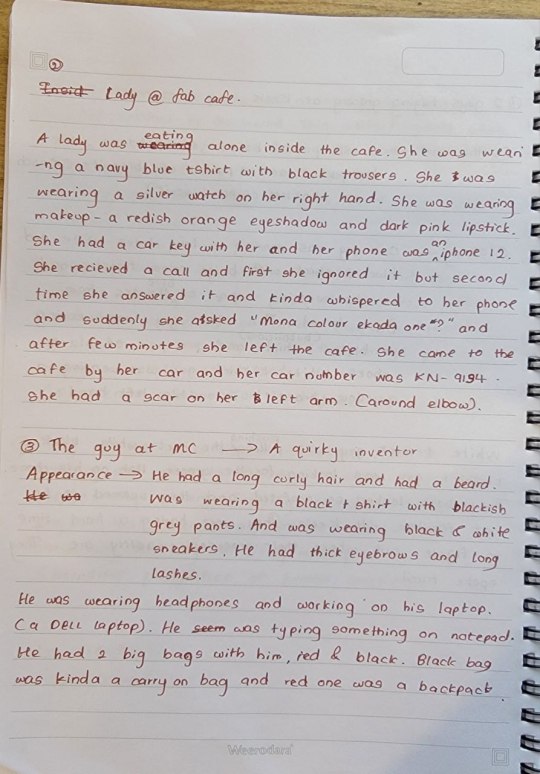 ②
Insid Lady @ fab cafe.
A lady was wearing eating alone inside the cafe. She was weari
-ng a navy blue tshirt with black trousers. She was
wearing a silver watch on her right hand. She was wearing
makeup - a redish orange eyeshadow and dark pink lipstick.
She had a car key with her and her phone was an iphone 12.
She recieved a call and first she ignored it but second
time she answered it and kinda whispered to her phone
and suddenly she asked "Mona colour ekada one"?" and
after few minutes she left the cafe. She came to the
cafe by her car and her car number was KN-9194.
She had a scar on her left arm. (around elbow).
③ The guy at MC → A quirky inventor
Appearance → He had a long curly hair and had a beard.
He wa was wearing a black t shirt with blackish
grey pants. And was wearing black & white
sneakers. He had thick eyebrows and long
lashes.
He was wearing headphones and working on his laptop.
(a DELL laptop). He seem was typing something on notepad.
He had 2 big bags with him, red & black. Black bag
was kinda a carry on bag and red one was a backpack.
Weerodara